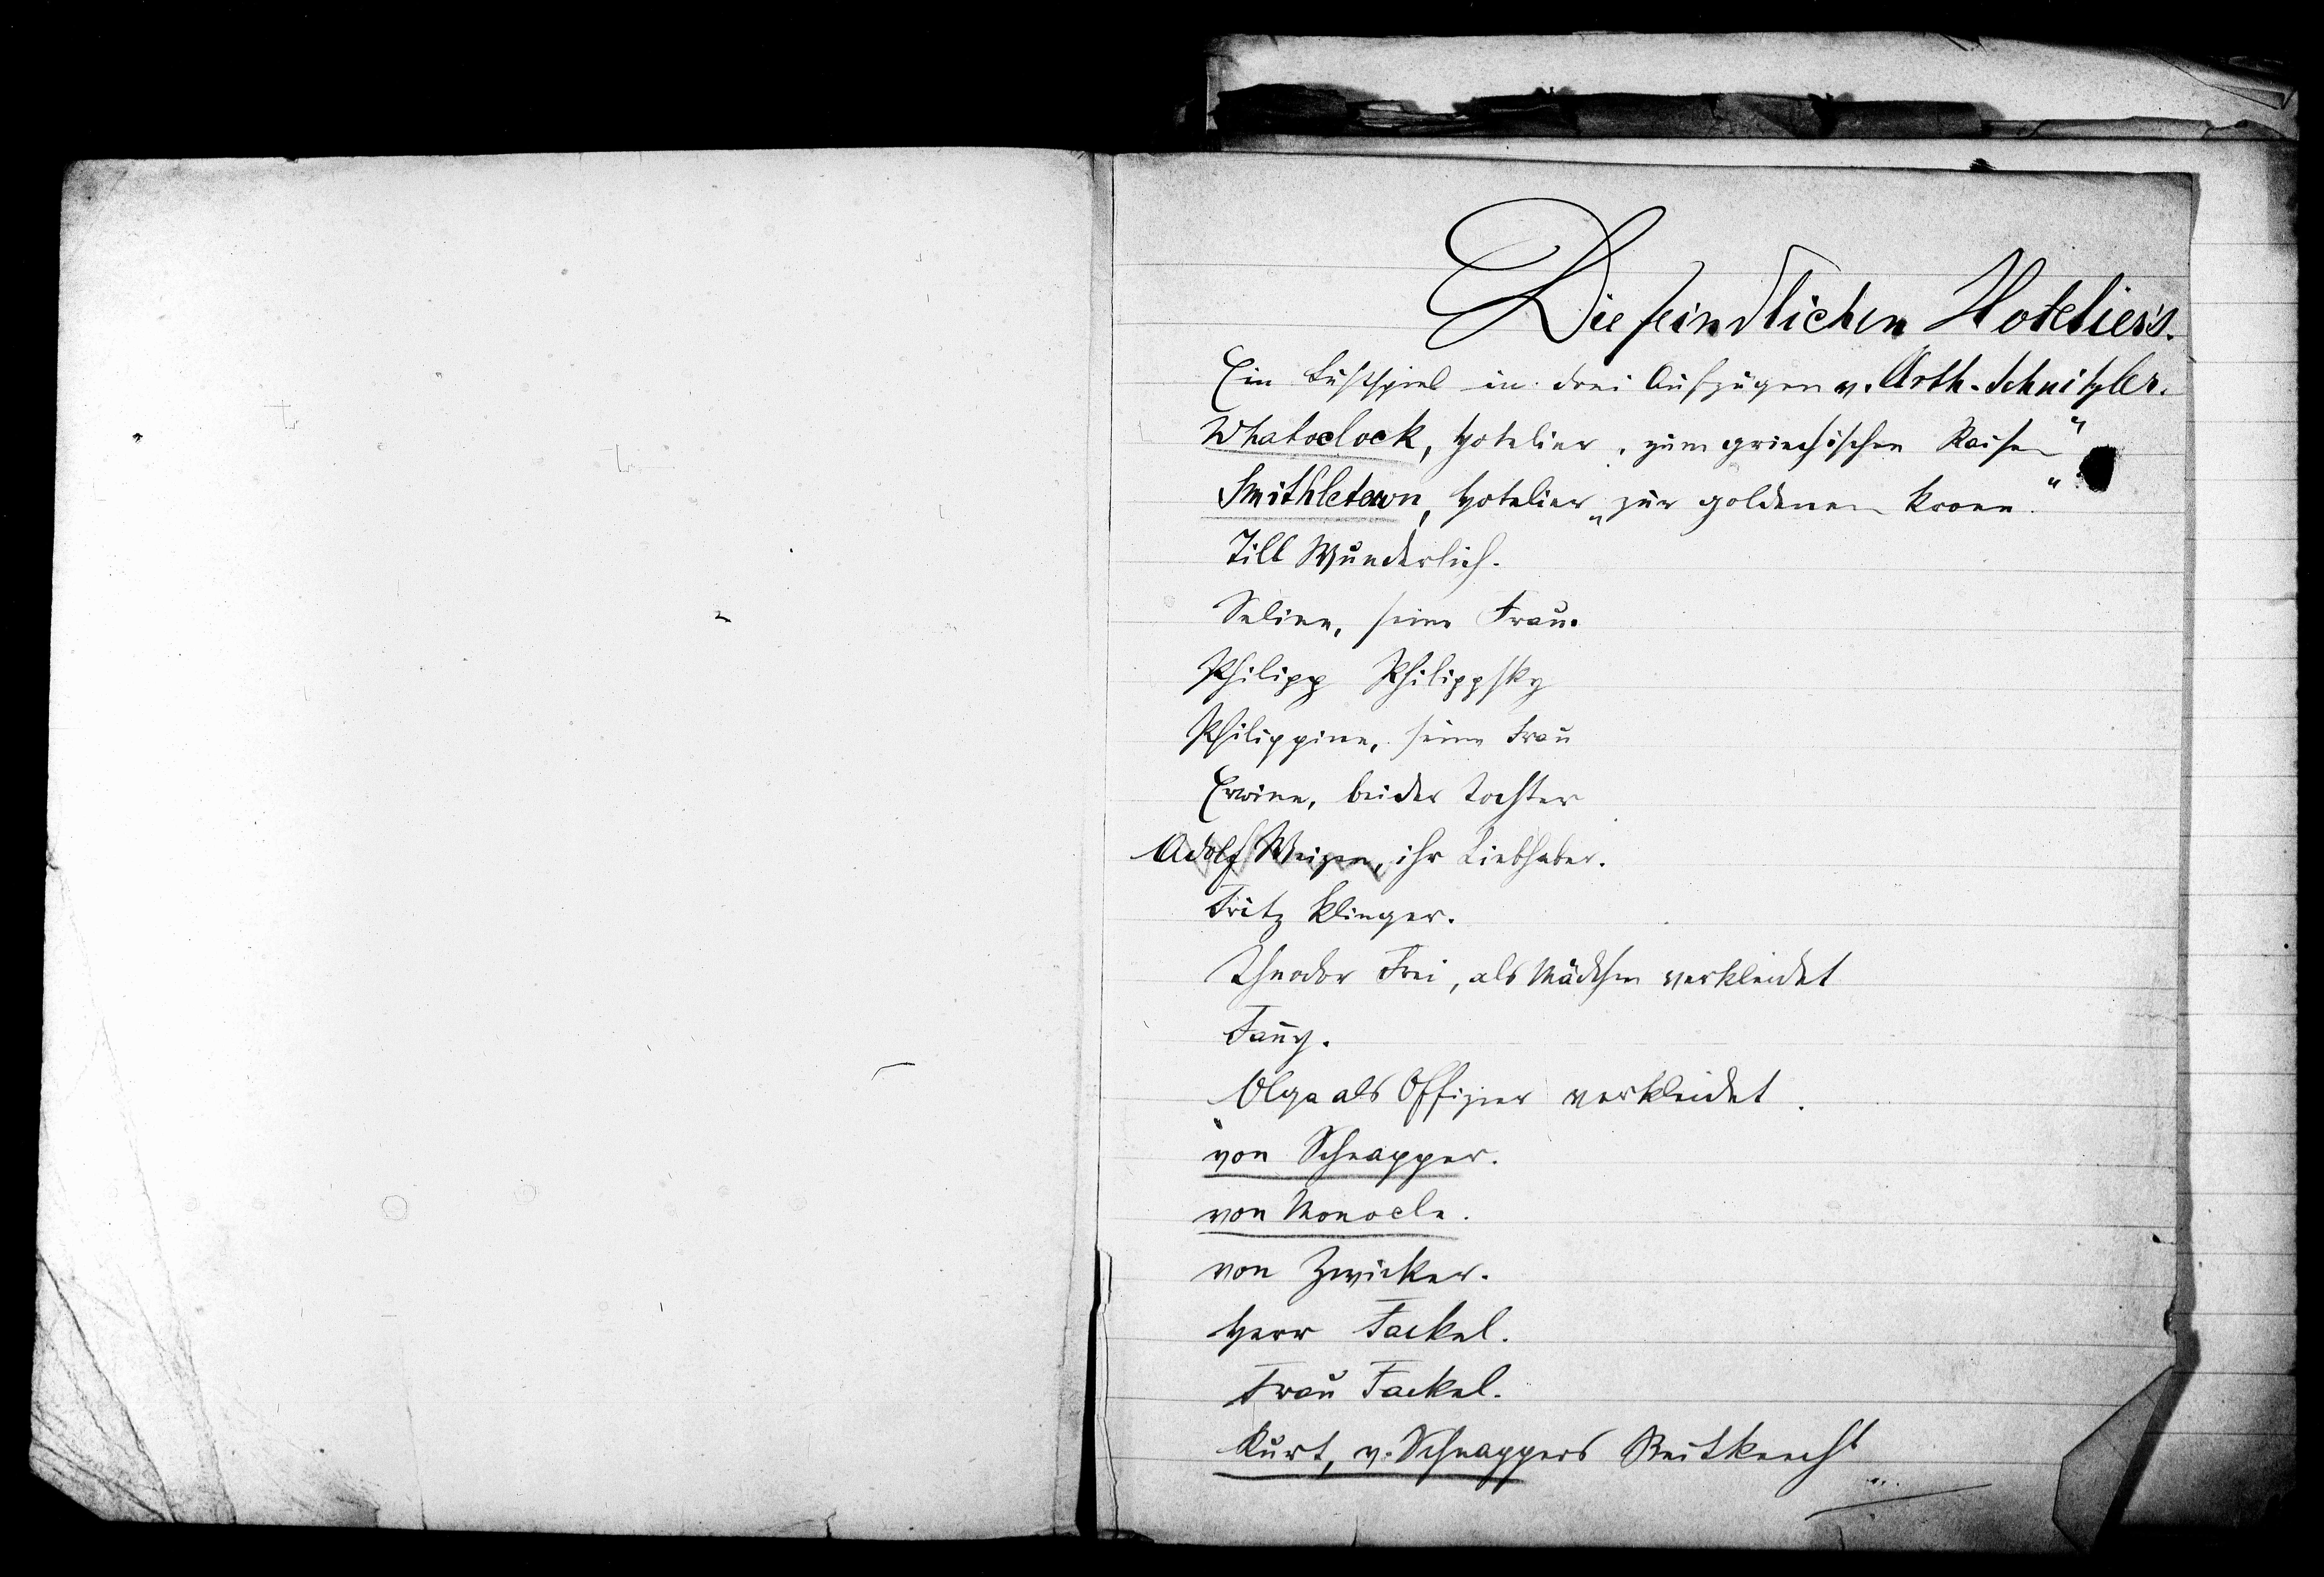 Die feindlichen Hoteliers.
Ein Lustspiel in drei Aufzügen v. Arth. Schnitzler.
Whatoclock, Hotelier „zum griechischen Kaiser“
Smithletown, Hotelier „zur goldenen Krone.“
Till Wunderlich.
Seline, seine Frau.
Philipp Philippsky
Philippine, seine Frau
Erwine, beider Tochter
Adolf Weizen, ihr Liebhaber.
Fritz Klinger.
Theodor Frei, als Mädchen verkleidet
Fan̄y.
Olga als Offizier verkleidet.
von Schnapper.
von Monocle.
von Zwicker.
Herr Fackel.
Frau Fackel.
Kurt, v. Schnappers Reitknecht